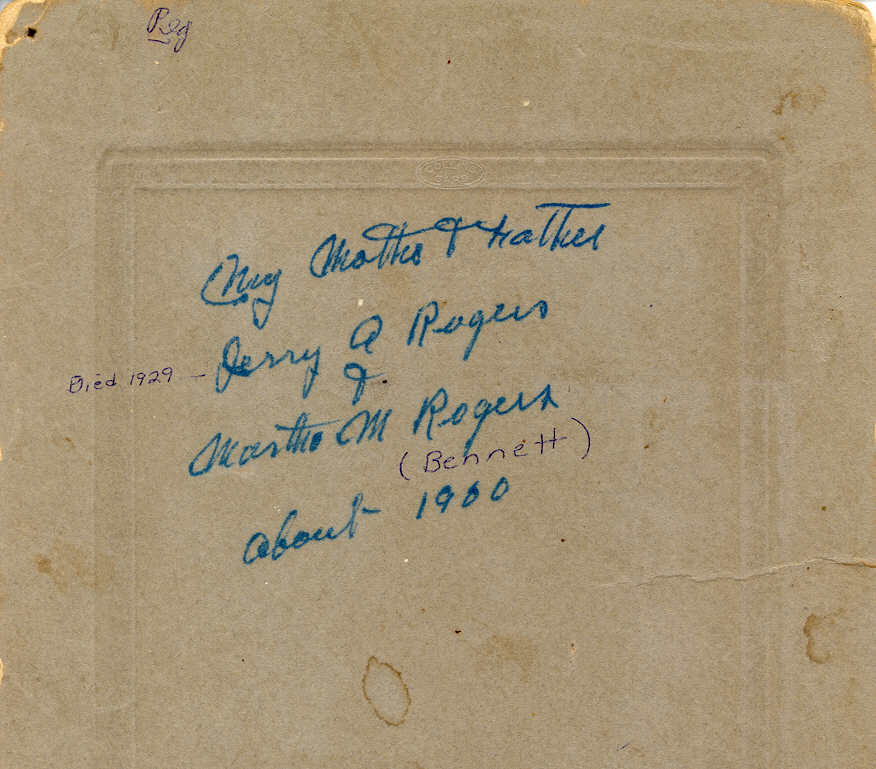 Reg
My Mother & Father
Died 1929 - Jerry A Rogers
&
Martha M Rogers
(Bennett)
about 1900